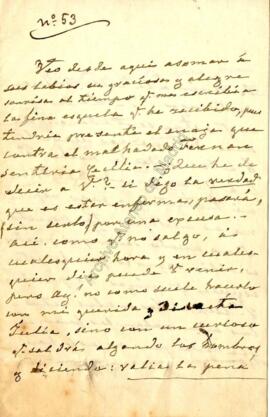 Nº 53
Veo desde aqui asomar á
sus labios su graciosa y alegre
sonrisa al tiempo q. me escribia
la fina esquela q. he recibido, pues
tendria presente el enojo que
contra el malhadado Fernan
sentiria Cecilia. Que he de
decir a V.? si digo la verdad
que es estar enferma, pasará,
(sin serlo) por una excusa.
Asi como no salgo, á
cualesquier hora y en cuales-
quier dia puede V. venir,
pero ay! no como suele hacerlo
con mi querida y
Julia, sino con un curioso
q. saldrá alzando los hombros
y diciendo: valia la pena